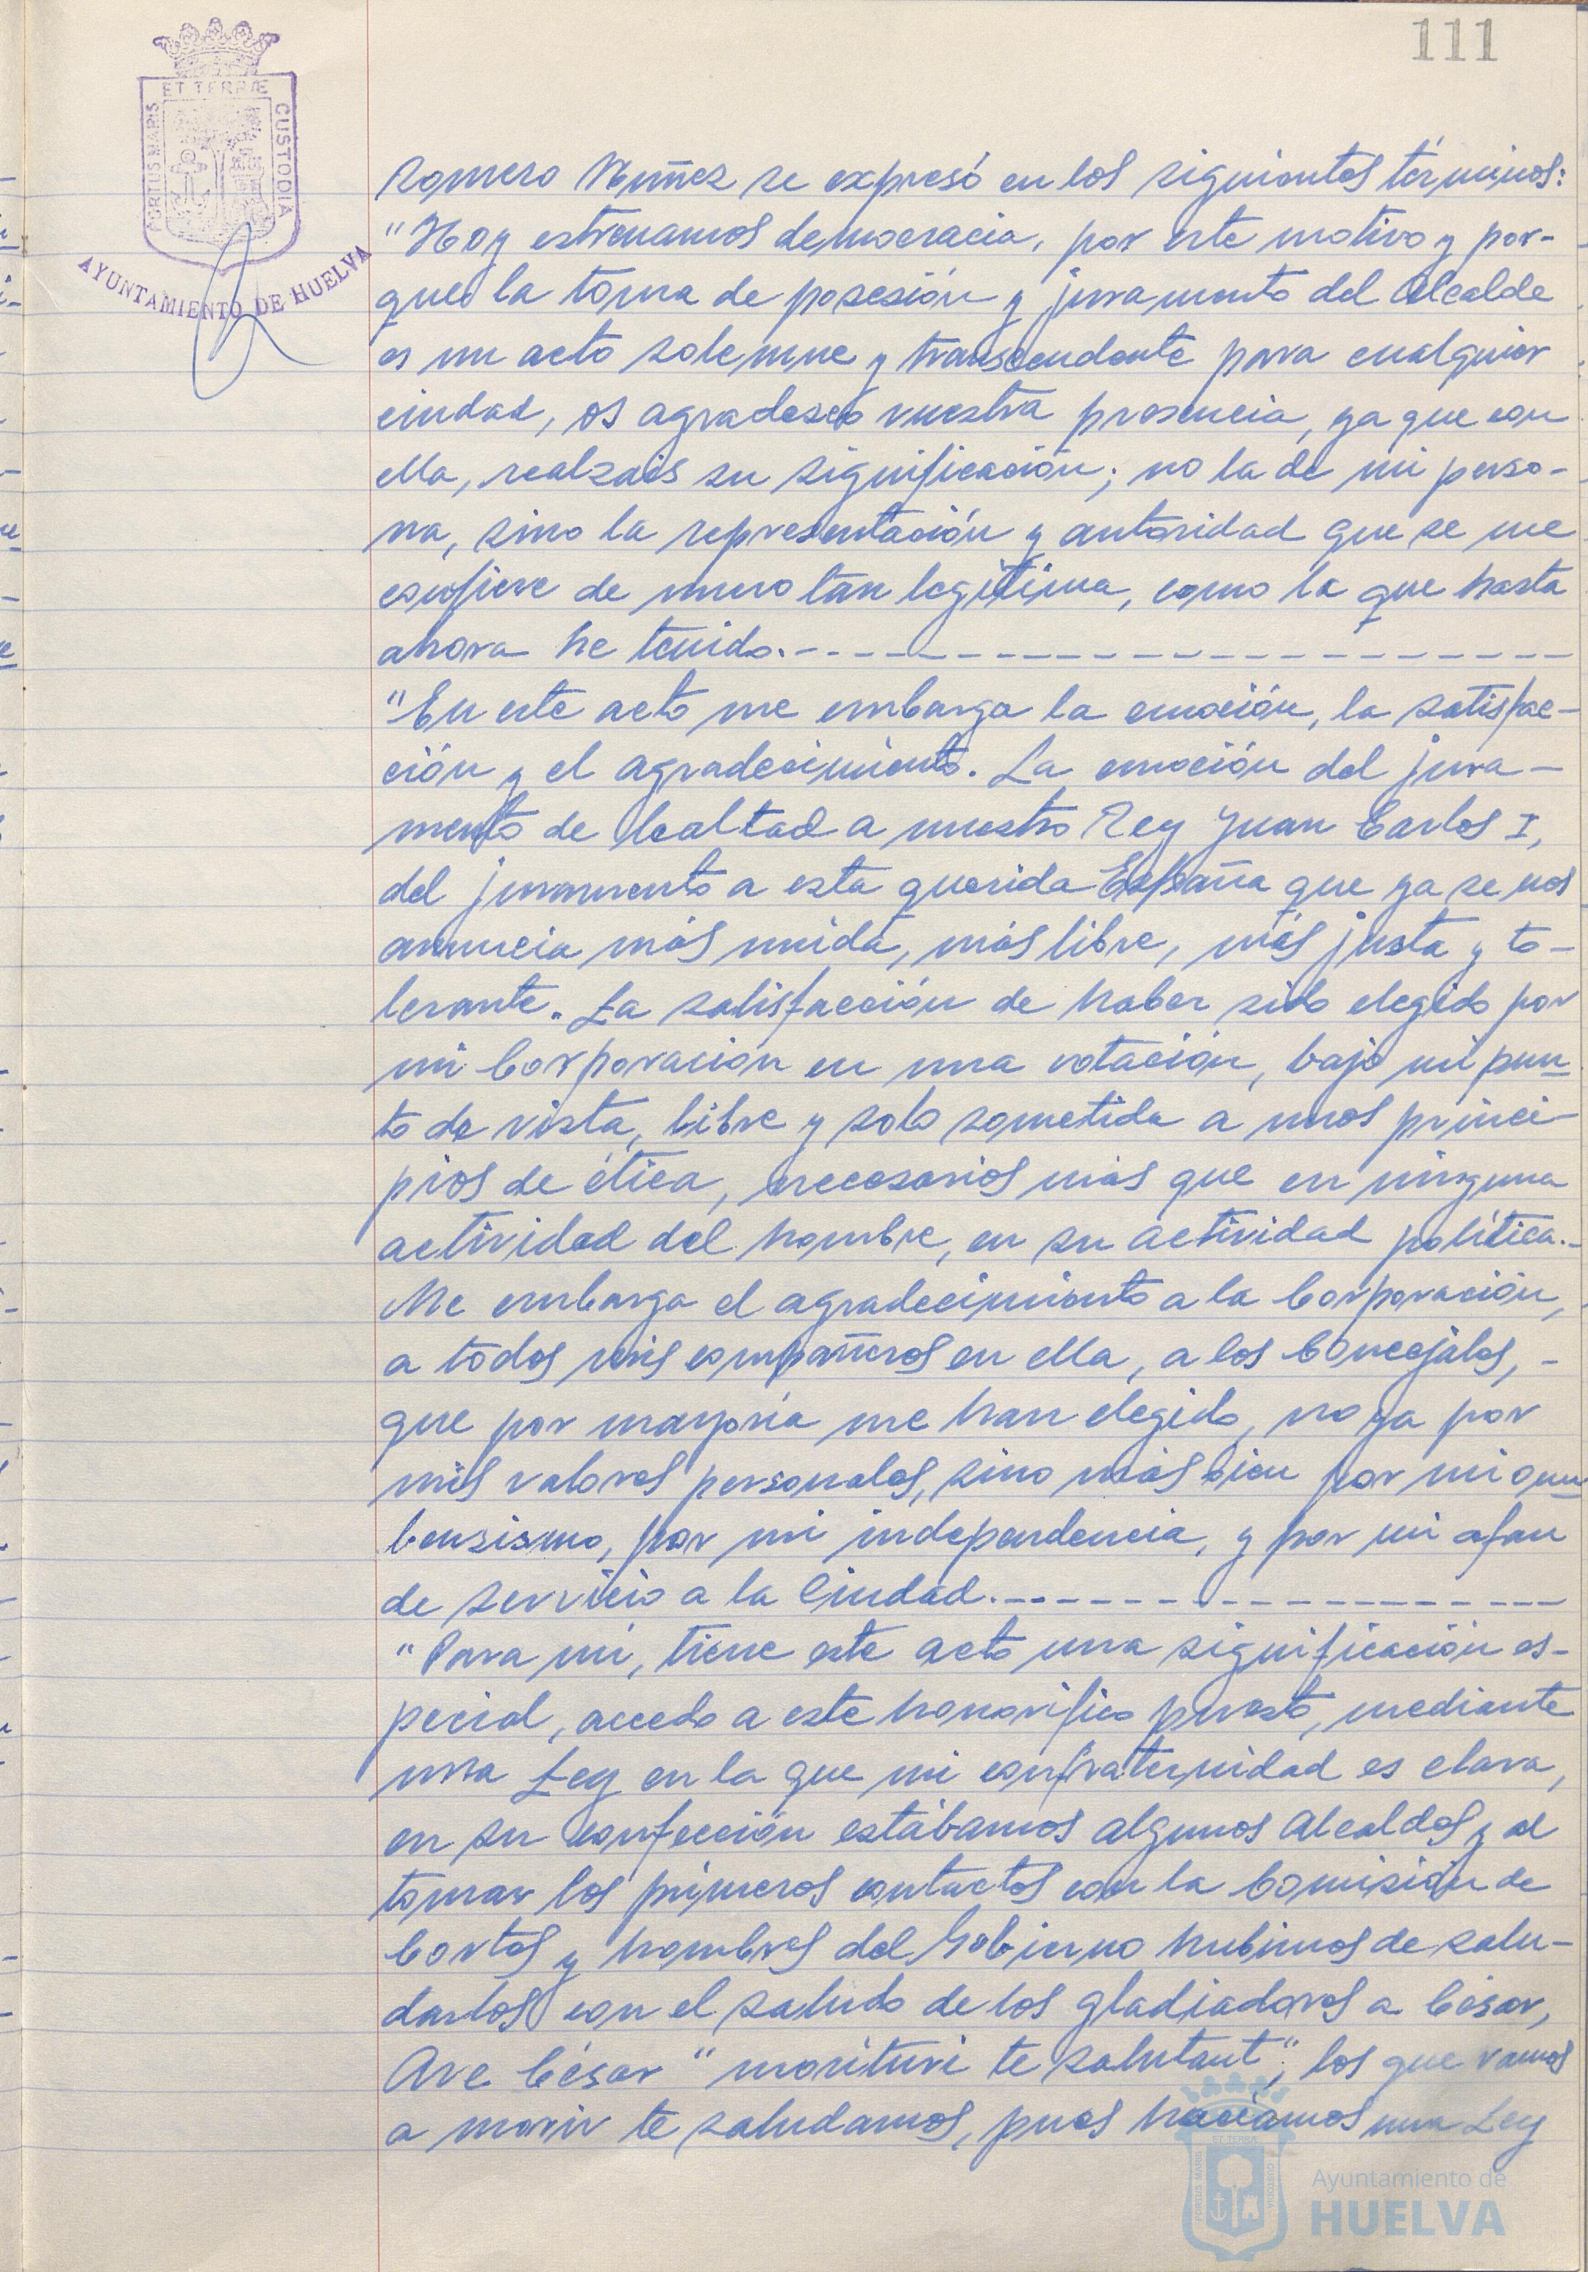 111
ET TERRÆ
PORTUS MARIS
CUSTODIA
AYUNTAMIENTO DE HUELVA
Romero Núñez se expresó en los siguientes términos:
"Hoy estrenamos democracia, por este motivo y por-
que la toma de posesión y juramento del Alcalde
es un acto solemne y transcendente para cualquier
ciudad, os agradesco vuestra presencia, ya que con
ella, realzais su significación; no la de mi perso-
na, sino la representación y autoridad que se me
confiere de nuevo tan legítima, como la que hasta
ahora he tenido.-----------------------
"En este acto me embarga la emoción, la satisfac-
ción y el agradecimiento. La emoción del jura-
mento de lealtad a nuestro Rey Juan Carlos I,
del juramento a esta querida España que ya se nos
anuncia más unida, más libre, más justa y to-
lerante. La satisfacción de haber sido elegido por
mi Corporación en una votación, bajo mi pun-
to de vista, libre y solo sometida a unos princi-
pios de ética, necesarios más que en ninguna
actividad del hombre, en su actividad política.-
Me embarga el agradecimiento a la Corporación,
a todos mis compañeros en ella, a los Concejales, -
que por mayoría me han elegido, no ya por
mis valores personales, sino más bien por mi onu-
bensismo, por mi independencia, y por mi afan
de servicio a la Ciudad.------------------
"Para mí, tiene este acto una significación es-
pecial, accedo a este honorifico puesto, mediante
una Ley en la que mi confraternidad es clara,
en su confección estábamos algunos Alcaldes y al
tomar los primeros contactos con la Comisión de
Cortes y hombres del Gobierno hubimos de salu-
darlos con el saludo de los gladiadores a César,
Ave César "morituri te salutant", los que vamos
a morir te saludamos, pues hacíamos una Ley
ET TERRA
PORTUS MARIS
CUSTODIA
Ayuntamiento de
HUELVA